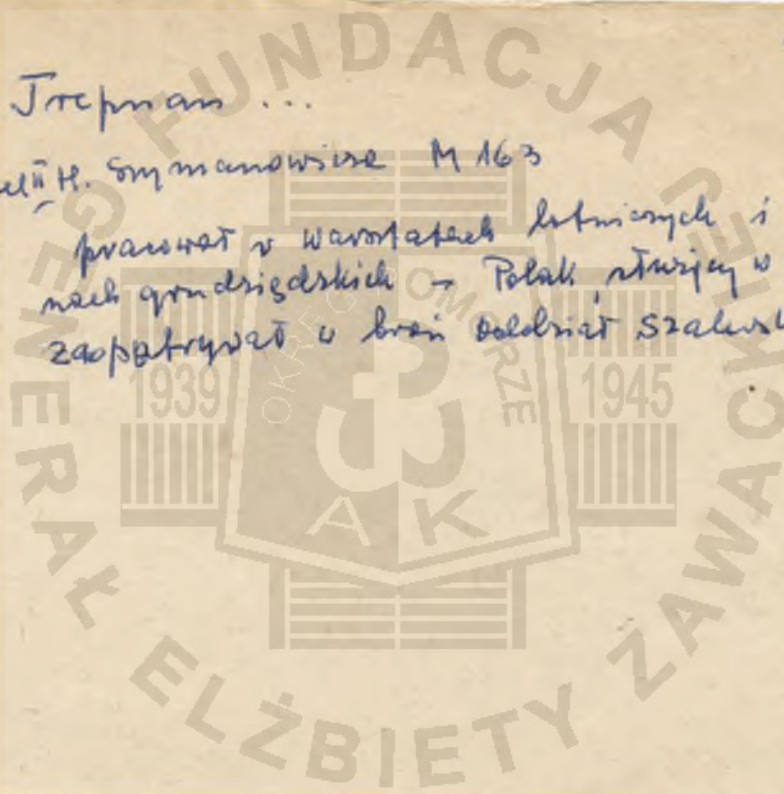 Trepnan ...
II H. Szymanowicza M 163
pracował w warsztatach lotniczych i
nach grudziądzkich – Polak służący w
zaopatrywał w broń oddział Szalewsk
FUNDACJA GENERAŁ ELŻBIETY ZAWACKIEJ
OKRĘG POMORZE
1939
1945
AK